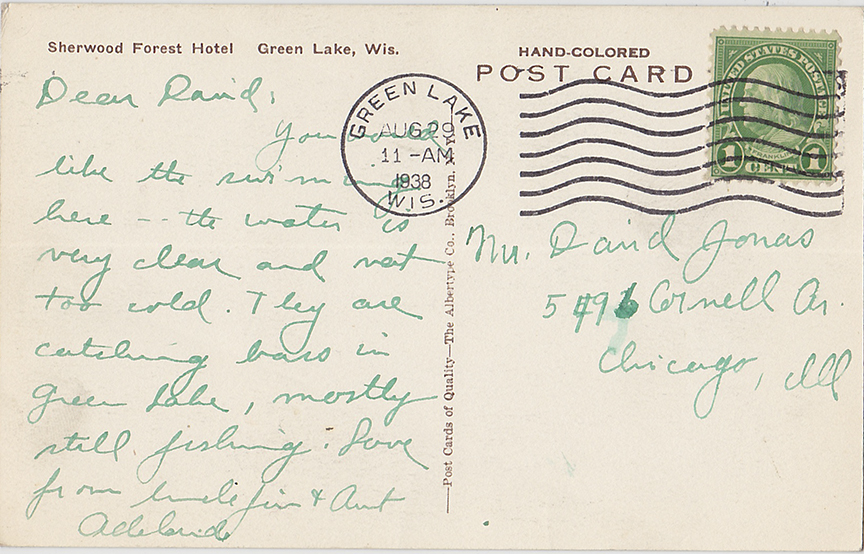 Sherwood Forest Hotel Green Lake, Wis.
HAND-COLORED
POST CARD
UNITED STATES POSTAGE
FRANKLIN
1 CENT 1
GREEN LAKE
AUG 29
11-AM
1938
WIS.
Dear David,
You would
like the swimming
here -- the water is
very clear and not
too cold. They are
catching bass in
Green Lake, mostly
still fishing. Love
from Uncle Jim & Aunt
Adelaide
—Post Cards of Quality—The Albertype Co., Brooklyn, N. Y.
Mr. David Jonas
Cornell Av.
Chicago, Ill